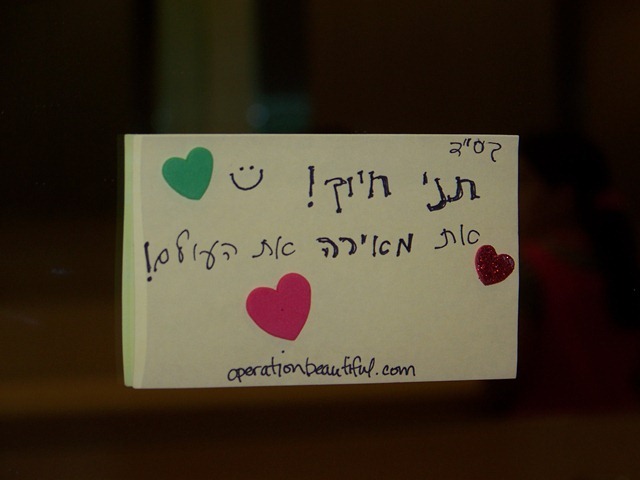 בס"ד
תני חיוך!
את מאירה את העולם!
operationbeautiful.com